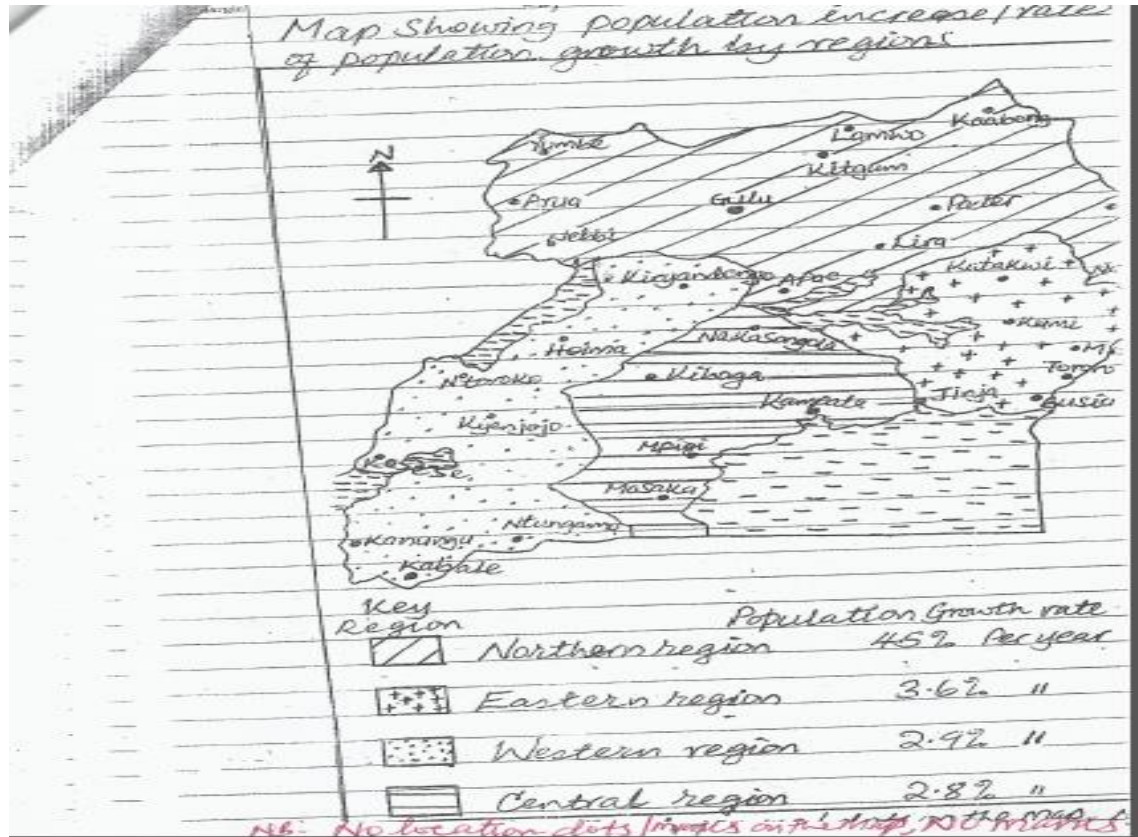 Map Showing population increase/rate
of population growth by regions
N
Kaabong
Lamwo
Yumbe
Kitgum
Arua
Gulu
Pader
Nebbi
Lira
Katakwi
Kiryandongo
Apac
Kumi
Nakasongola
Hoima
Ntoroko
Kiboga
Tororo
Jinja
Busia
Kampala
Kyenjojo
Mpigi
Kasese
Masaka
Ntungamo
Kanungu
Kabale
Key
Region
Population Growth rate
Northern region 45% Per year
Eastern region 3.6% "
Western region 2.9% "
Central region 2.8% "
NB: No location dots/ on the map, No